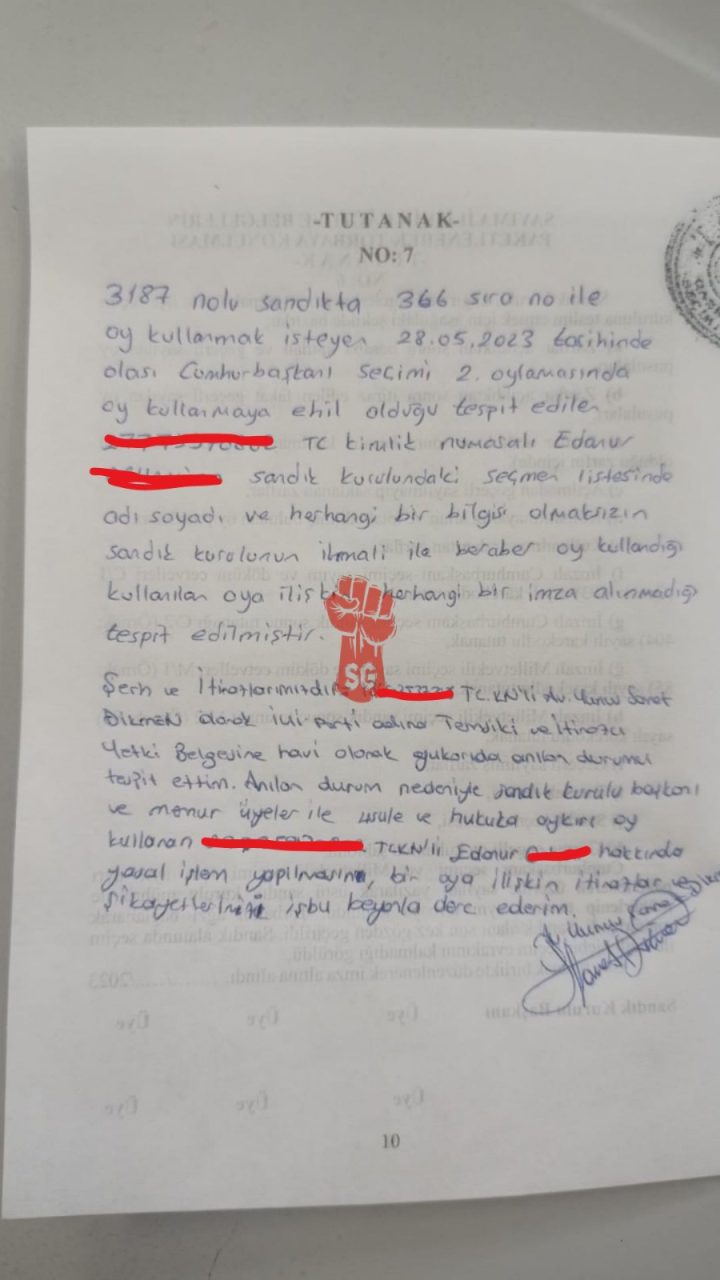 -TUTANAK-
NO: 7
3187 nolu sandıkta 366 sıra no ile
oy kullanmak isteyen 28.05.2023 tarihinde
olası Cumhurbaşkanı Seçimi 2. oylamasında
oy kullanmaya ehil olduğu tespit edilen
TC kimlik numaralı Edanur
sandık kurulundaki seçmen listesinde
adı soyadı ve herhangi bir bilgisi olmaksızın
sandık kurulunun ihmali ile beraber oy kullandığı
kullanılan oya ilişkin herhangi bir imza alınmadığı
tespit edilmiştir.
SG
Şerh ve İtirazlarımızdır. TC.KN'li Av. Yunus
DİKMEN olarak İYİ Parti adına Temsilci ve İtirazcı
Yetki Belgesine havi olarak yukarıda anılan durumu
tespit ettim. Anılan durum nedeniyle sandık kurulu başkanı
ve memur üyeler ile usule ve hukuka aykırı oy
kullanan TCKN'li Edanur hakkında
yasal işlem yapılmasını, bir oya ilişkin itirazlar ve
şikayetlerimizi işbu beyanla derc ederim.
Av. Yunus
10